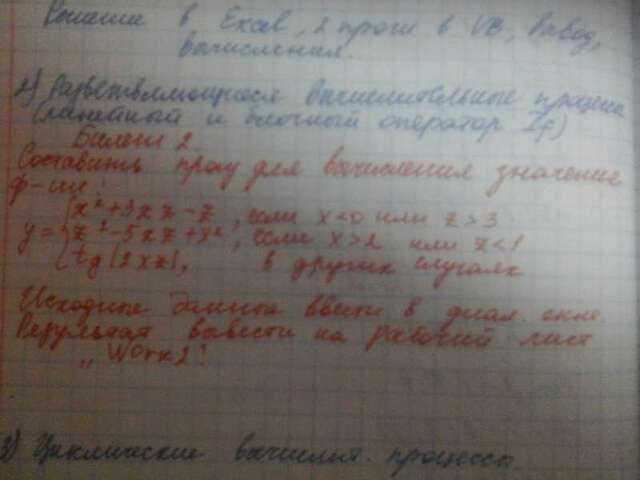 Решение в Excel, 2 проги в VB, вывод,
вычисления.
1) Разветвляющиеся вычислительные процессы
(линейный и блочный оператор If)
Билет 2
Составить прогу для вычисления значение
ф-ии:
y = { x²+3xz-z, если x<0 или z>3
z²-5xz+x², если x>2 или z<1
tg(2xz), в других случаях
Исходные данные ввести в диал. окне.
Результат вывести на рабочий лист
„Work2".
2) Циклические вычисл. процессы